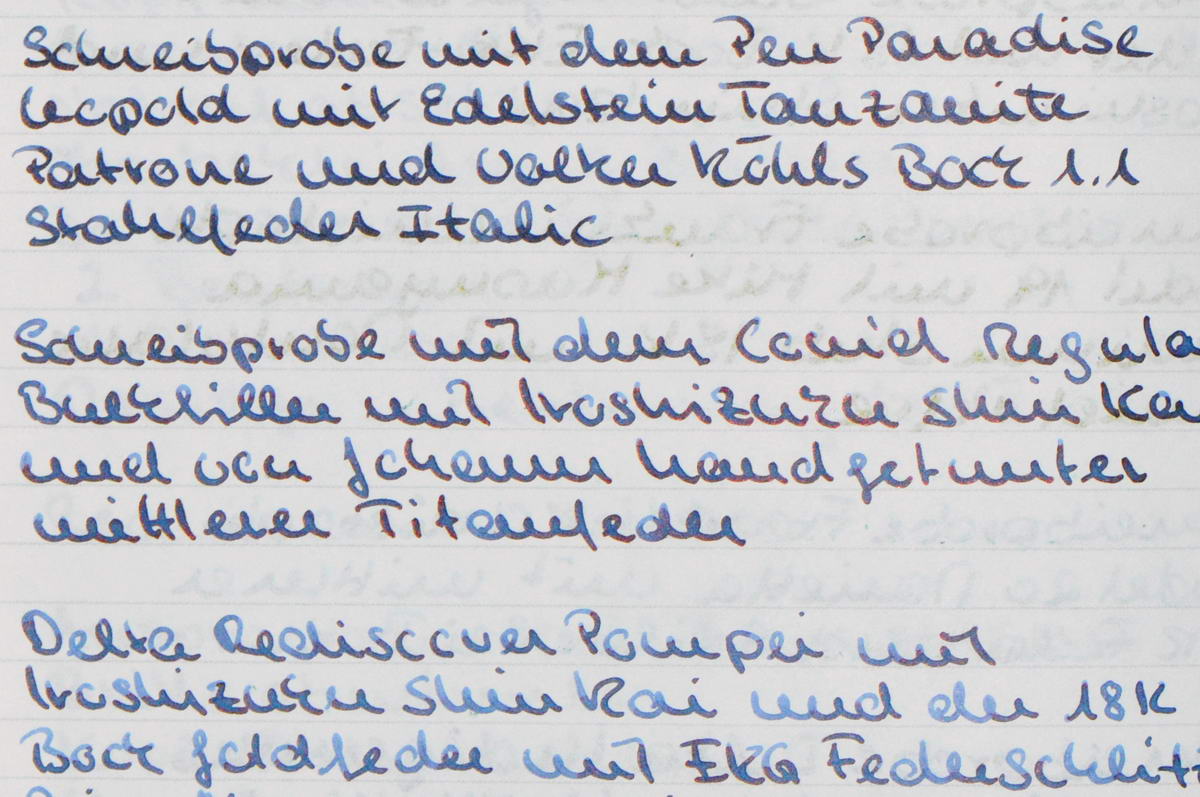 Schreibprobe mit dem Pen Paradise
Leopold mit Edelstein Tanzanite
Patrone und Volker Röhls Bock 1.1
Stahlfeder Italic
Schreibprobe mit dem Conid Regula
Bulkfiller mit Iroshizuku Shin Ka
und von Johann handgetunter
mittlerer Titanfeder
Delta Rediscover Pompei mit
Iroshizuku Shin Kai und der 18K
Bock Goldfeder mit EKG Federschlitz